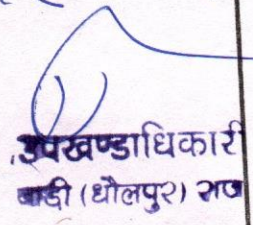 उपखण्डाधिकारी
बाडी (धौलपुर) राज